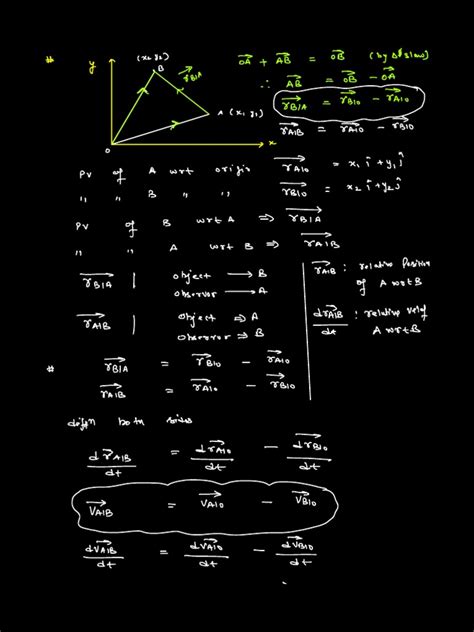 # y (x2, y2) B r⃗B|A A (x1, y1) O x
OA⃗ + AB⃗ = OB⃗ (by Δ's law)
∴ AB⃗ = OB⃗ − OA⃗
r⃗B|A = r⃗B|O − r⃗A|O
r⃗A|B = r⃗A|O − r⃗B|O
PV of A wrt origin r⃗A|O = x1 î + y1 ĵ
" " B " " r⃗B|O = x2 î + y2 ĵ
PV of B wrt A ⇒ r⃗B|A
" " A wrt B ⇒ r⃗A|B
r⃗B|A | object → B
observer → A
r⃗A|B | object ⇒ A
observer ⇒ B
r⃗A|B : relative Position
of A wrt B
dr⃗A|B/dt : relative vel of
A wrt B
# r⃗B|A = r⃗B|O − r⃗A|O
r⃗A|B = r⃗A|O − r⃗B|O
diffn both sides
dr⃗A|B/dt = dr⃗A|O/dt − dr⃗B|O/dt
V⃗A|B = V⃗A|O − V⃗B|O
dV⃗A|B/dt = dV⃗A|O/dt − dV⃗B|O/dt